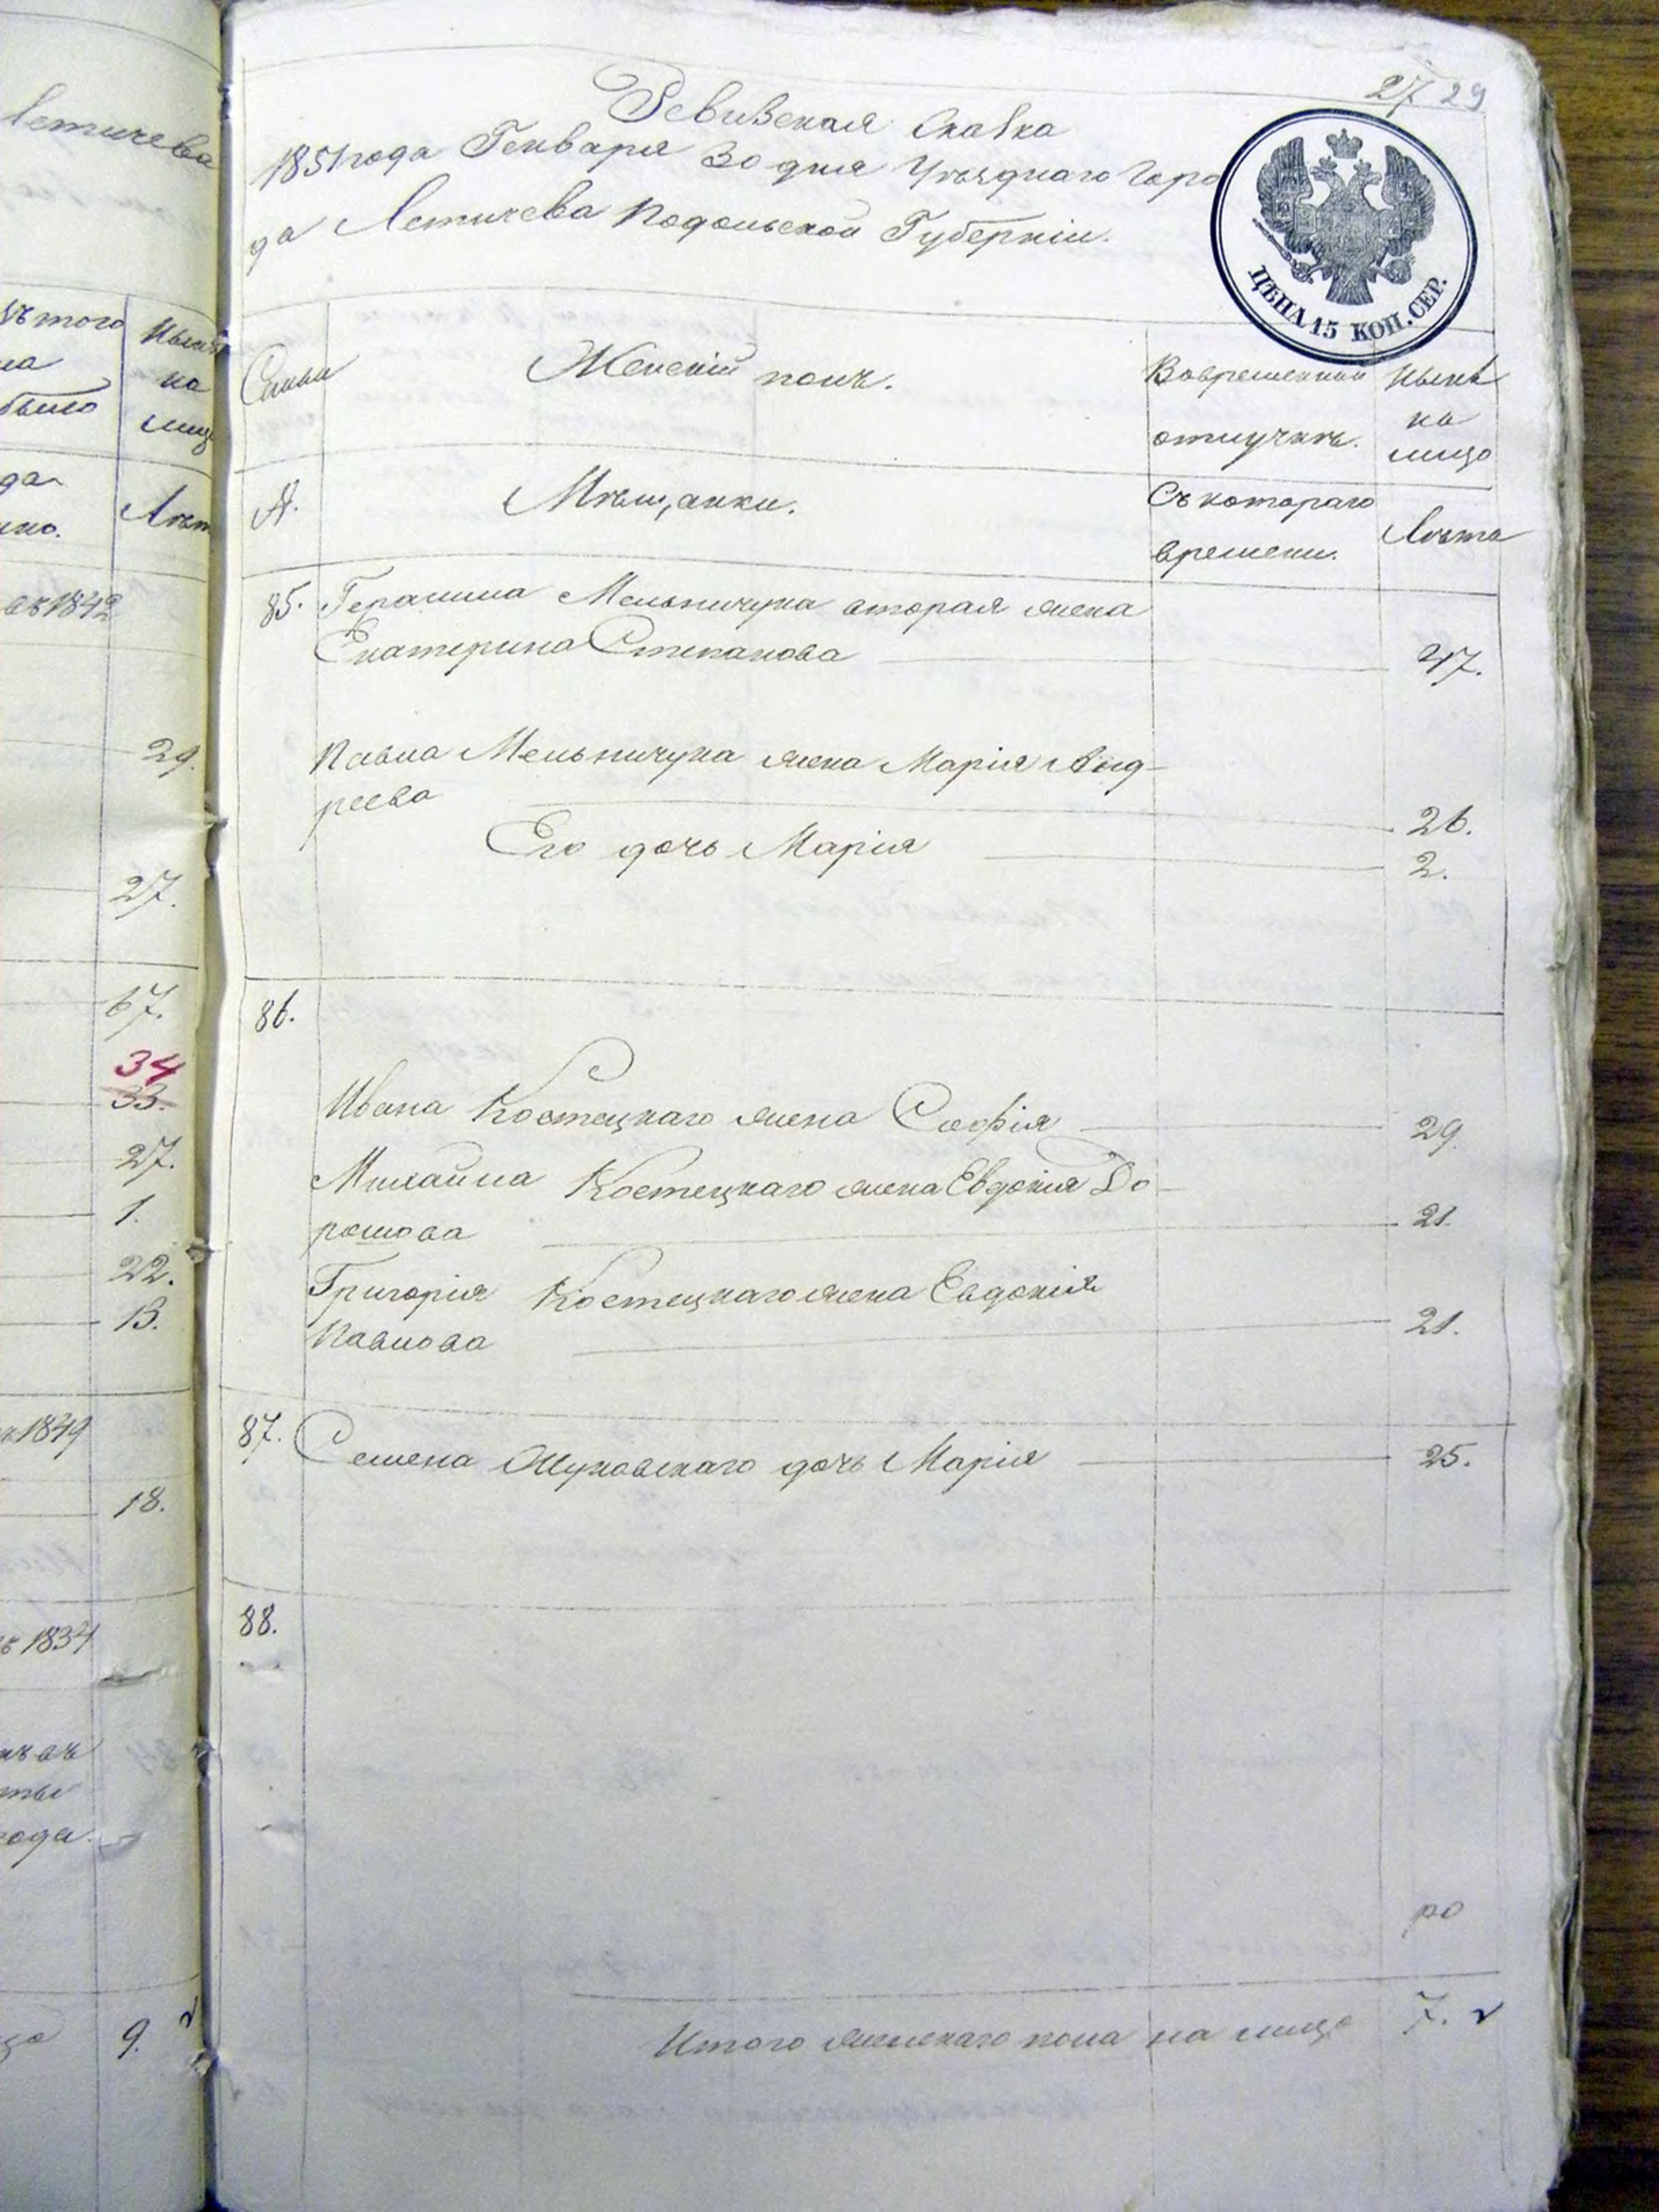 27 29
Ревизская Сказка
1851 года Генваря 30 дня Уѣзднаго Горо
да Летичева Подольской Губерніи.
ЦѢНА 15 КОП. СЕР.
Семьи
Женскій полъ.
Вовременной
отлучкѣ.
Нынѣ
на
лицо
№.
Мѣщанки.
Съ котораго
времени.
Лѣта
85. Герасима Мельничука вторая жена
Екатерина Степанова 47.
Павла Мельничука жена Марія Анд-
реева 26.
Его дочь Марія 2.
86.
Ивана Костецкаго жена Софія 29
Михайла Костецкаго жена Евдокія До-
рошова 21.
Григорія Костецкаго жена Евдокія
Павлова 21.
87. Семена дочь Марія 25.
88.
Итого женскаго пола на лицо 7.
Летичева
этого
на
было
Нынѣ
на
лицо
Лѣт
въ 1842
29.
27.
67.
34
33.
27.
1.
22.
13.
1849
18.
1834
года.
9.